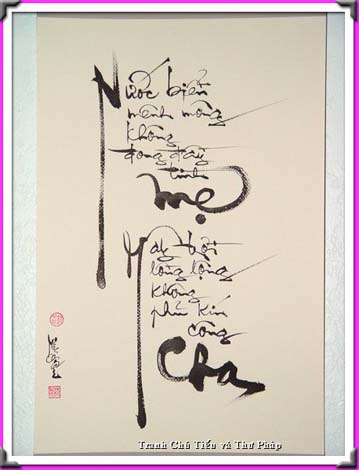 Nước biển
mênh mông
không
đong đầy
tình
mẹ
Mây trời
lồng lộng
không
phủ kín
công
Cha
Tranh Chú Tiểu và Thư Pháp